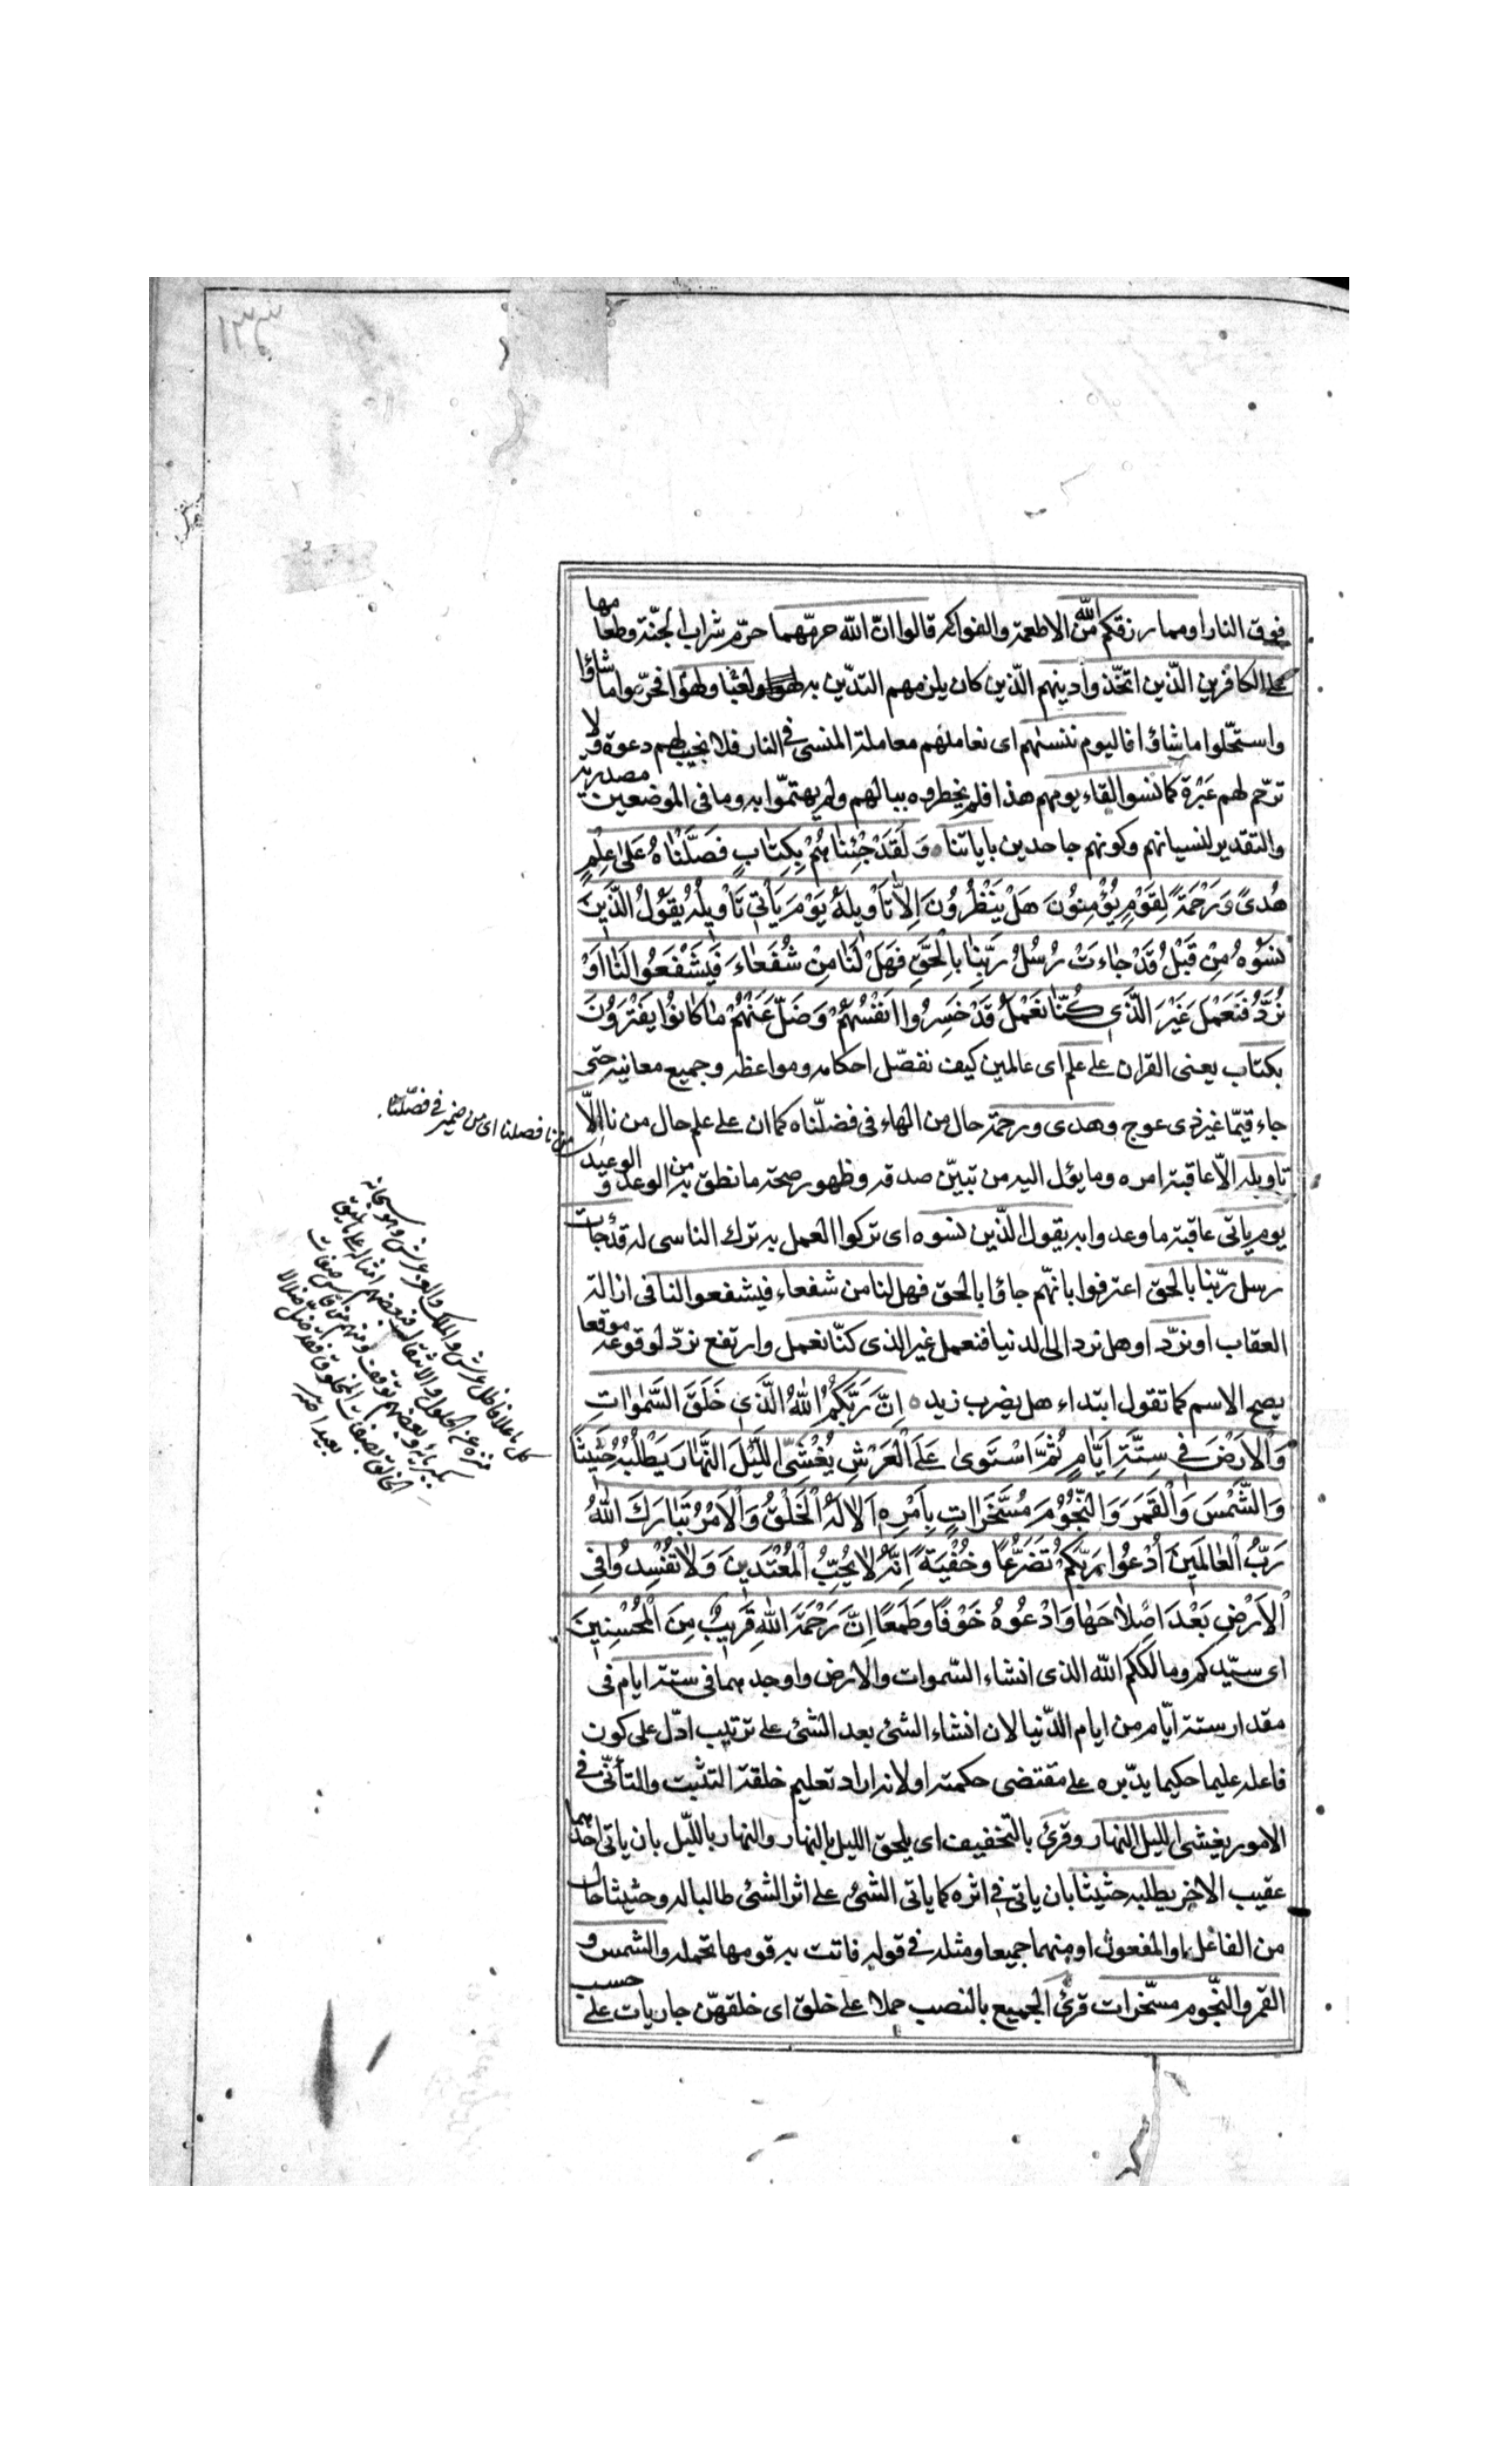 فوق النار او مما رزقكم الله من الاطعمة والفواكه قالوا انّ الله حرمّهما حرّم شراب الجنّة وطعامها
على الكافرين الّذين اتخّذوا دينهم الّذين كان يلزمهم التدّين به لهوا ولعبا فحرّموا ما شاؤا
واستحّلوا ما شاؤا فاليوم ننسٰهم اى نعاملهم معاملة المنسى فى النار فلا نجيب لهم دعوة ولا
نرحّم لهم عَبْرة كما نسوا لقاء يومهم هذا فلم يخطروه ببالهم ولم يهتمّوا به وما فى الموضعين مصدرية
والتقدير لنسيانهم وكونهم جاحدين باياتنا وَلَقَدْ جِئْنٰاهُمْ بِكِتٰابٍ فَصَّلْنٰاهُ عَلىٰ عِلْمٍ
هُدىً وَرَحْمَةً لِقَوْمٍ يُؤْمِنُونَ هَلْ يَنْظُرُونَ اِلاّٰ تَأْوِيلَهُ يَوْمَ يَأْتِي تَأْوِيلُهُ يَقُولُ الَّذِينَ
نَسُوهُ مِنْ قَبْلُ قَدْ جٰاءَتْ رُسُلُ رَبِّنٰا بِالْحَقِّ فَهَلْ لَنٰا مِنْ شُفَعٰاءَ فَيَشْفَعُوا لَنٰا اَوْ
نُرَدُّ فَنَعْمَلَ غَيْرَ الَّذِي كُنّٰا نَعْمَلُ قَدْ خَسِرُوا اَنْفُسَهُمْ وَضَلَّ عَنْهُمْ مٰا كٰانُوا يَفْتَرُونَ
بكتاب يعنى القران على علم اى عالمين كيف نفصّل احكامه ومواعظه وجميع معانيه حتى
جاء قيّما غير ذى عوج وهدى ورحمة حال من الهاء فى فصّلناه كما ان على علم حال من نا الّا
من نا فصلنا اى من ضمير فى فصّلنا
تاويله الّا عاقبة امره وما يؤل اليه من تبيّن صدقه وظهور صحة ما نطق به من الوعد والوعيد
يوم ياتى عاقبة ما وعدوا به يقول الّذين نسوه اى تركوا العمل به ترك الناسى له قد جائت
رسل ربّنا بالحق اعترفوا بانهّم جاؤا بالحق فهل لنا من شفعاء فيشفعوا لنا فى ازالة
العقاب او نردّ او هل نرد الى الدنيا فنعمل غير الذى كنّا نعمل وارتفع نردّ لوقوعه موقعا
يصح الاسم كما تقول ابتداء هل يضرب زيد اِنَّ رَبَّكُمُ اللهُ الَّذِي خَلَقَ السَّمٰوٰاتِ
وَالْاَرْضَ فِي سِتَّةِ اَيّٰامٍ ثُمَّ اسْتَوىٰ عَلَى الْعَرْشِ يُغْشِي اللَّيْلَ النَّهٰارَ يَطْلُبُهُ حَثِيثاً
وَالشَّمْسَ وَالْقَمَرَ وَالنُّجُومَ مُسَخَّرٰاتٍ بِاَمْرِهِ اَلاٰ لَهُ الْخَلْقُ وَالْاَمْرُ تَبٰارَكَ اللهُ
رَبُّ الْعٰالَمِينَ اُدْعُوا رَبَّكُمْ تَضَرُّعاً وَخُفْيَةً اِنَّهُ لاٰ يُحِبُّ الْمُعْتَدِينَ وَلاٰ تُفْسِدُوا فِي
الْاَرْضِ بَعْدَ اِصْلاٰحِهٰا وَادْعُوهُ خَوْفاً وَطَمَعاً اِنَّ رَحْمَةَ اللهِ قَرِيبٌ مِنَ الْمُحْسِنِينَ
اى سيّدكم ومالككم الله الذى انشاء السّموات والارض واوجدهما فى ستة ايام فى
مقدار ستة ايّام من ايام الدّنيا لان انشاء الشئ بعد الشئ على ترتيب ادّل على كون
فاعله عليما حكيما يدبّره على مقتضى حكمته او لانه اراد تعليم خلقة التثبت والتأنّى فى
الامور يغشى الليل النهار وقرئ بالتخفيف اى يلحق الليل بالنهار والنهار باللّيل بان ياتى احدهما
عقيب الاخر يطلبه حثيثا بان ياتى فى اثره كما ياتى الشئ على اثر الشئ طالبا له وحثيثا حال
من الفاعل او المفعول او منهما جميعا ومثله فى قوله فاتت به قومها تحمله والشمس و
القمر والنّجوم مسّخرات قرئ الجميع بالنصب حملا على خلق اى خلقهّن جاريات على حسب